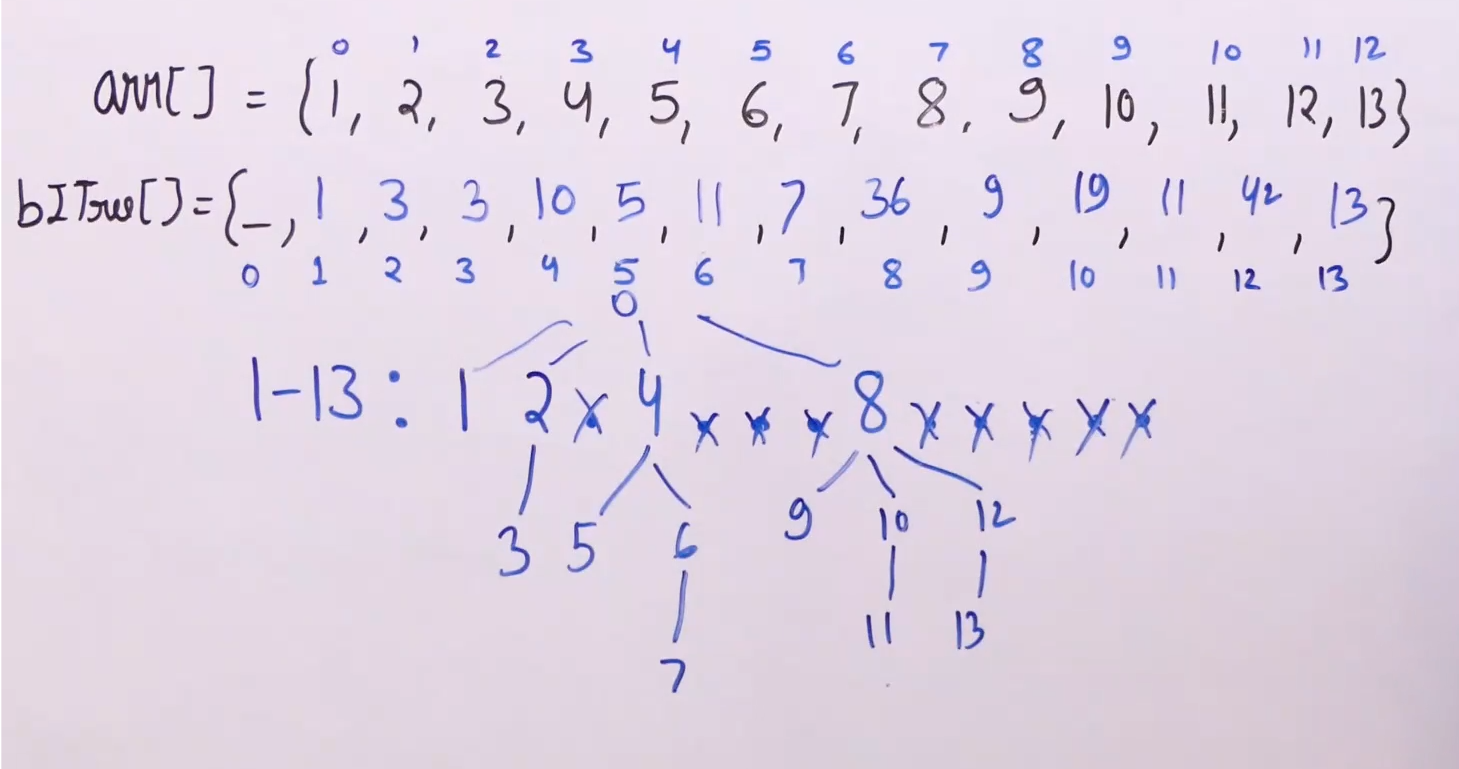 0 1 2 3 4 5 6 7 8 9 10 11 12
arr[] = {1, 2, 3, 4, 5, 6, 7, 8, 9, 10, 11, 12, 13}
bITree[] = {_, 1, 3, 3, 10, 5, 11, 7, 36, 9, 19, 11, 42, 13}
0 1 2 3 4 5 6 7 8 9 10 11 12 13
0
1-13 : 1 2 x 4 x x x 8 x x x x x
3 5 6 9 10 12
7 11 13